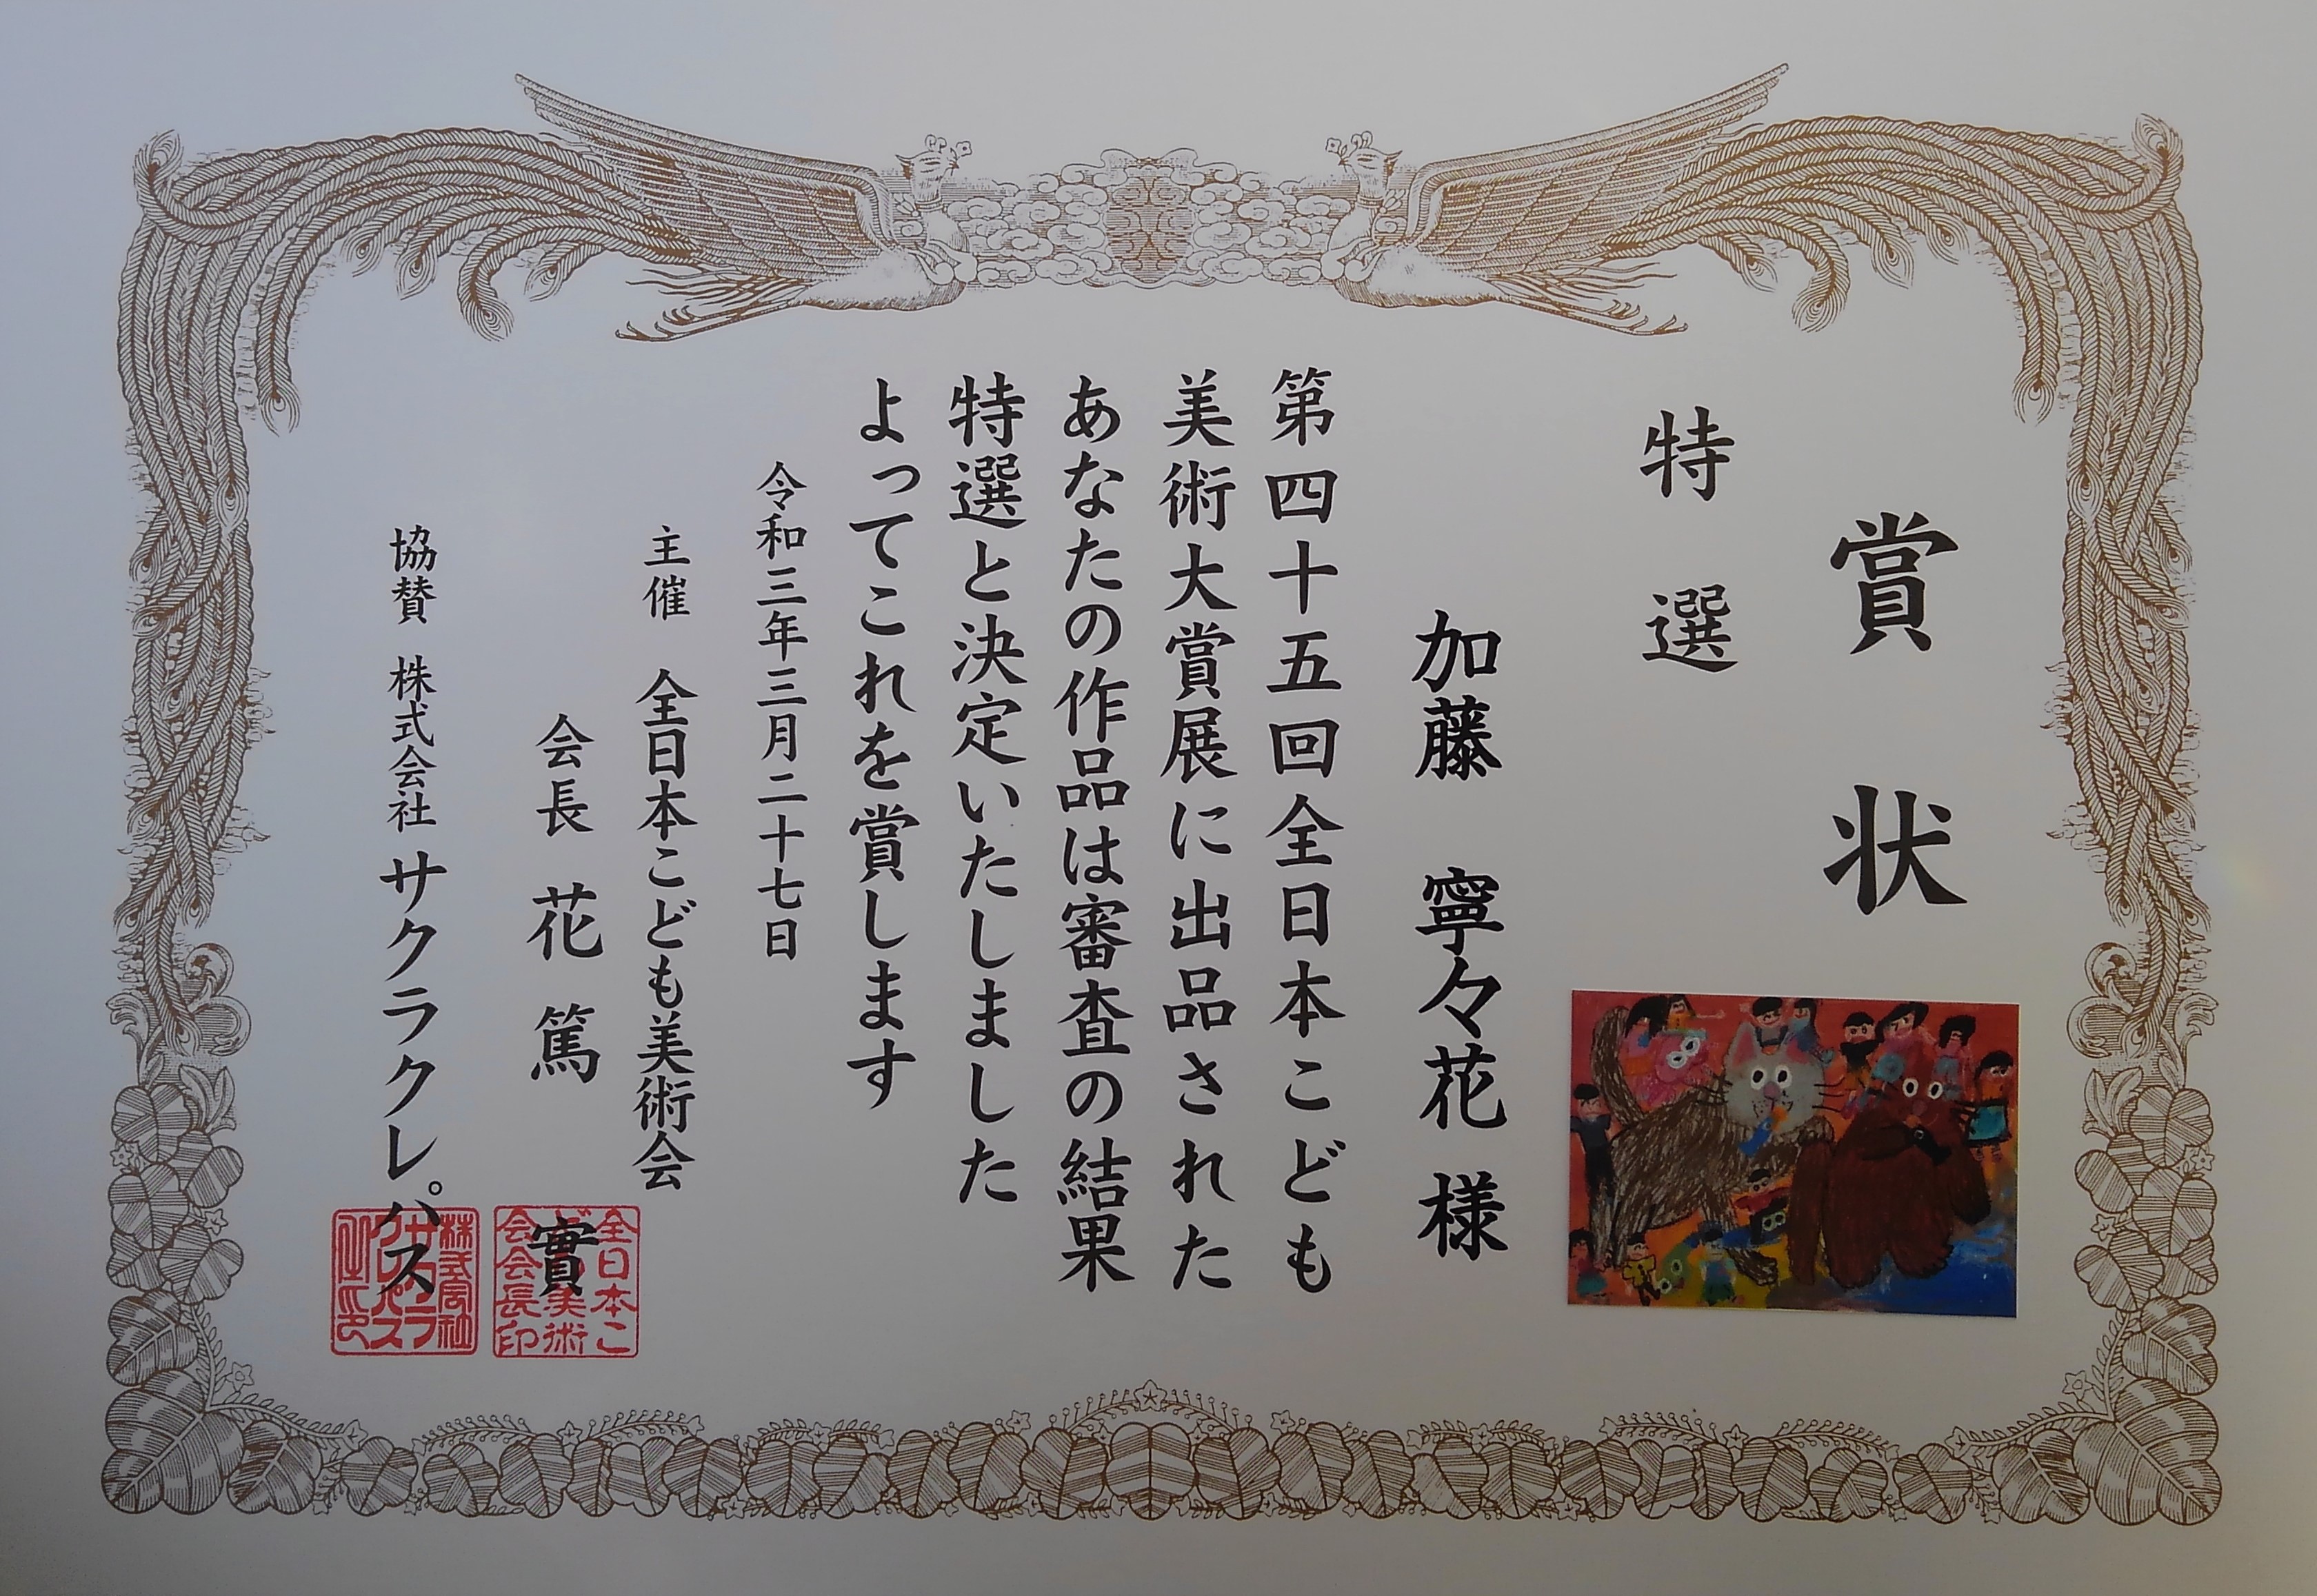 賞状
特選
加藤 寧々花 様
第四十五回全日本こども
美術大賞展に出品された
あなたの作品は審査の結果
特選と決定いたしました
よってこれを賞します
令和三年三月二十七日
主催 全日本こども美術会
会長 花篤 實
協賛 株式会社 サクラクレパス
全日本こ
ども美術
会会長印
株式会社
サクラク
レパス
之印